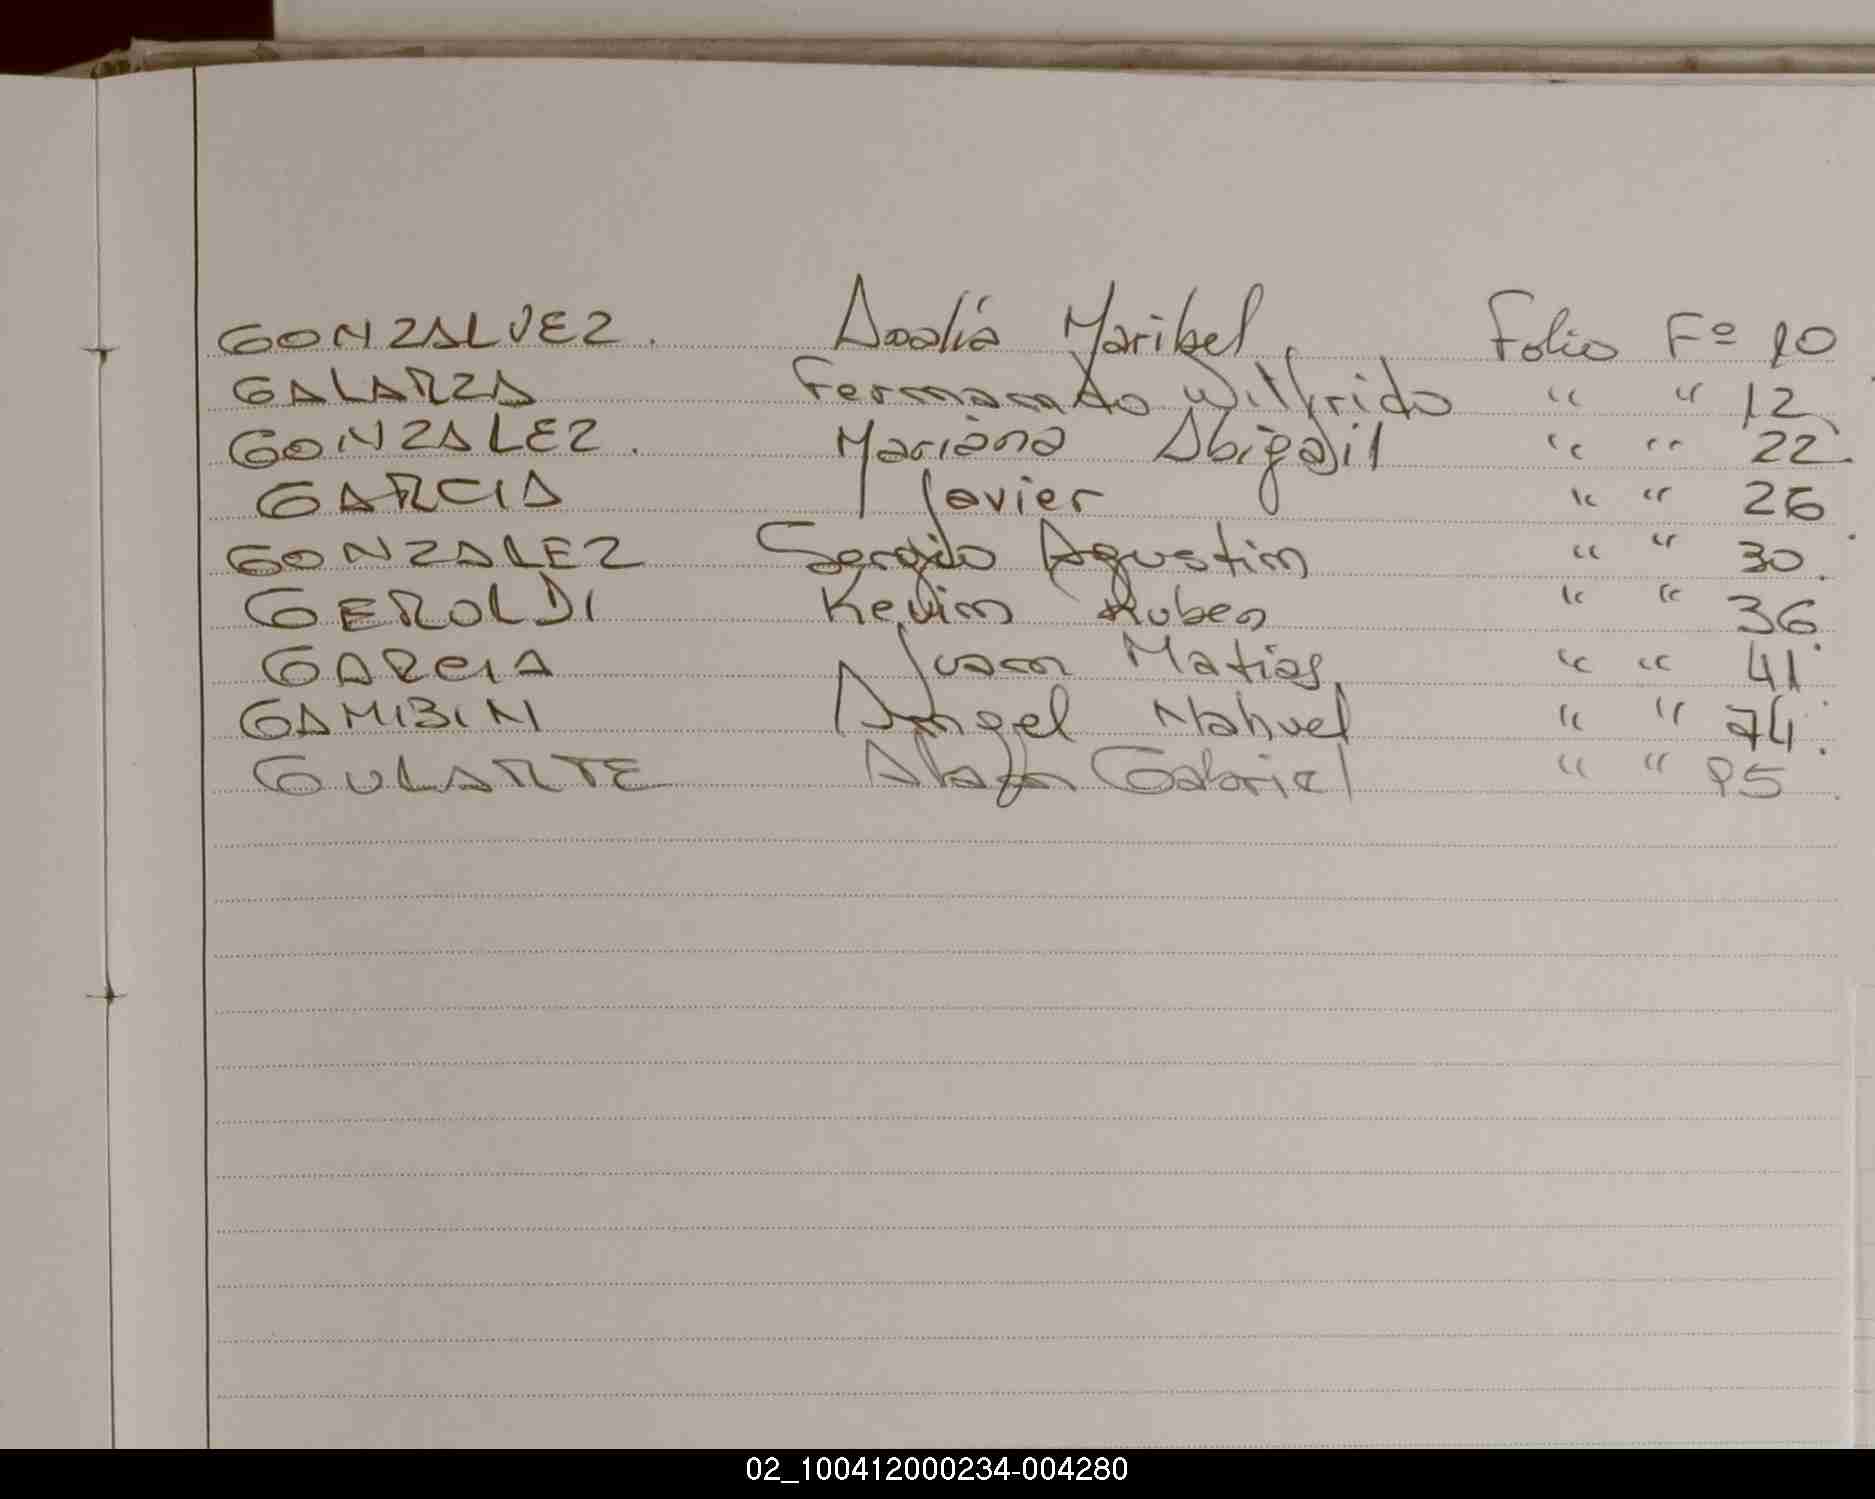 GONZALVEZ. Analía Maribel. Folio Fº 10
GALARZA Fernando Wilfrido “ “ 12
GONZALEZ. Mariana Abigail “ “ 22.
GARCIA Javier “ “ 26
GONZALEZ Sergio Agustin “ “ 30.
GEROLDI Kevin Ruben “ “ 36
GARCIA Juan Matias “ “ 41
GAMIBIN Angel Nahuel “ “ 74.
GULARTE Gabriel “ “
02_100412000234-004280